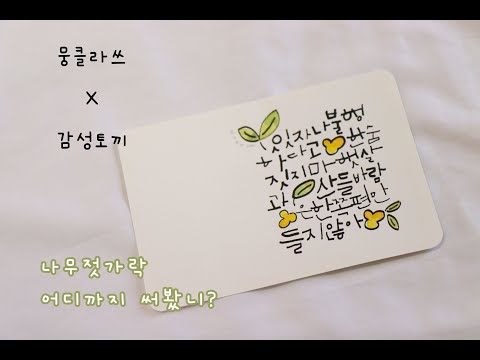 뭉클라쓰
X
감성토끼
있잖아불행
하다고 한숨
짓지마햇살
과 산들바람
은한쪽편만
들지않아
나무젓가락
어디까지 써봤니?